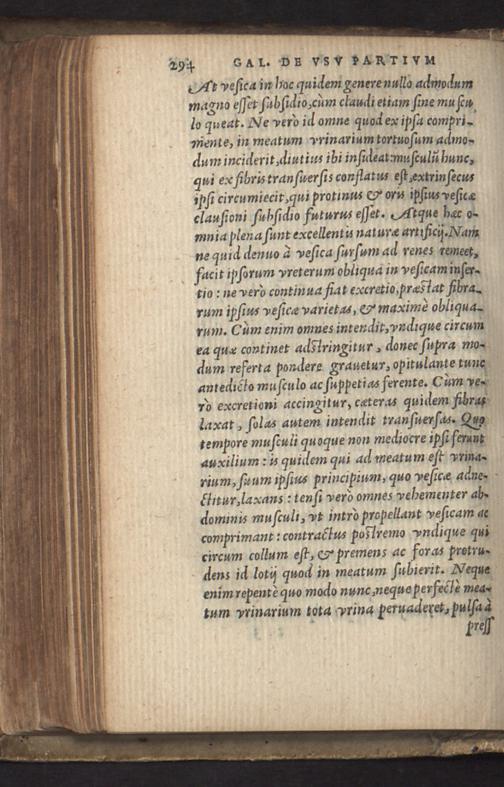 294 GAL. DE VSV PARTIVM
At vesica in hoc quidem genere nullo admodum
magno esset subsidio, cùm claudi etiam sine muscu
lo queat. Ne verò id omne quod ex ipsa compri-
mente, in meatum vrinarium tortuosum admo-
dum inciderit, diutius ibi insideat: musculũ hunc,
qui ex fibris transuersis conflatus est, extrinsecus
ipsi circumiecit, qui protinus & oris ipsius vesicæ
clausioni subsidio futurus esset. Atque hæc o-
mnia plena sunt excellentis naturæ artificij. Nam
ne quid denuo à vesica sursum ad renes remeet,
facit ipsorum vreterum obliqua in vesicam inser-
tio: ne verò continua fiat excretio, præstat fibra-
rum ipsius vesicæ varietas, & maximè obliqua-
rum. Cùm enim omnes intendit, vndique circum
ea quæ continet adstringitur, donec supra mo-
dum referta pondere grauetur, opitulante tunc
antedicto musculo ac suppetias ferente. Cùm ve-
rò excretioni accingitur, cæteras quidem fibras
laxat, solas autem intendit transuersas. Quo
tempore musculi quoque non mediocre ipsi ferunt
auxilium: is quidem qui ad meatum est vrina-
rium, suum ipsius principium, quo vesicæ adne-
ctitur, laxans: tensi verò omnes vehementer ab-
dominis musculi, vt intrò propellant vesicam ac
comprimant: contractus postremo vndique qui
circum collum est, & premens ac foras protru-
dens id lotij quod in meatum subierit. Neque
enim repentè quo modo nunc, neque perfectè mea-
tum vrinarium tota vrina peruaderet, pulsa à
press